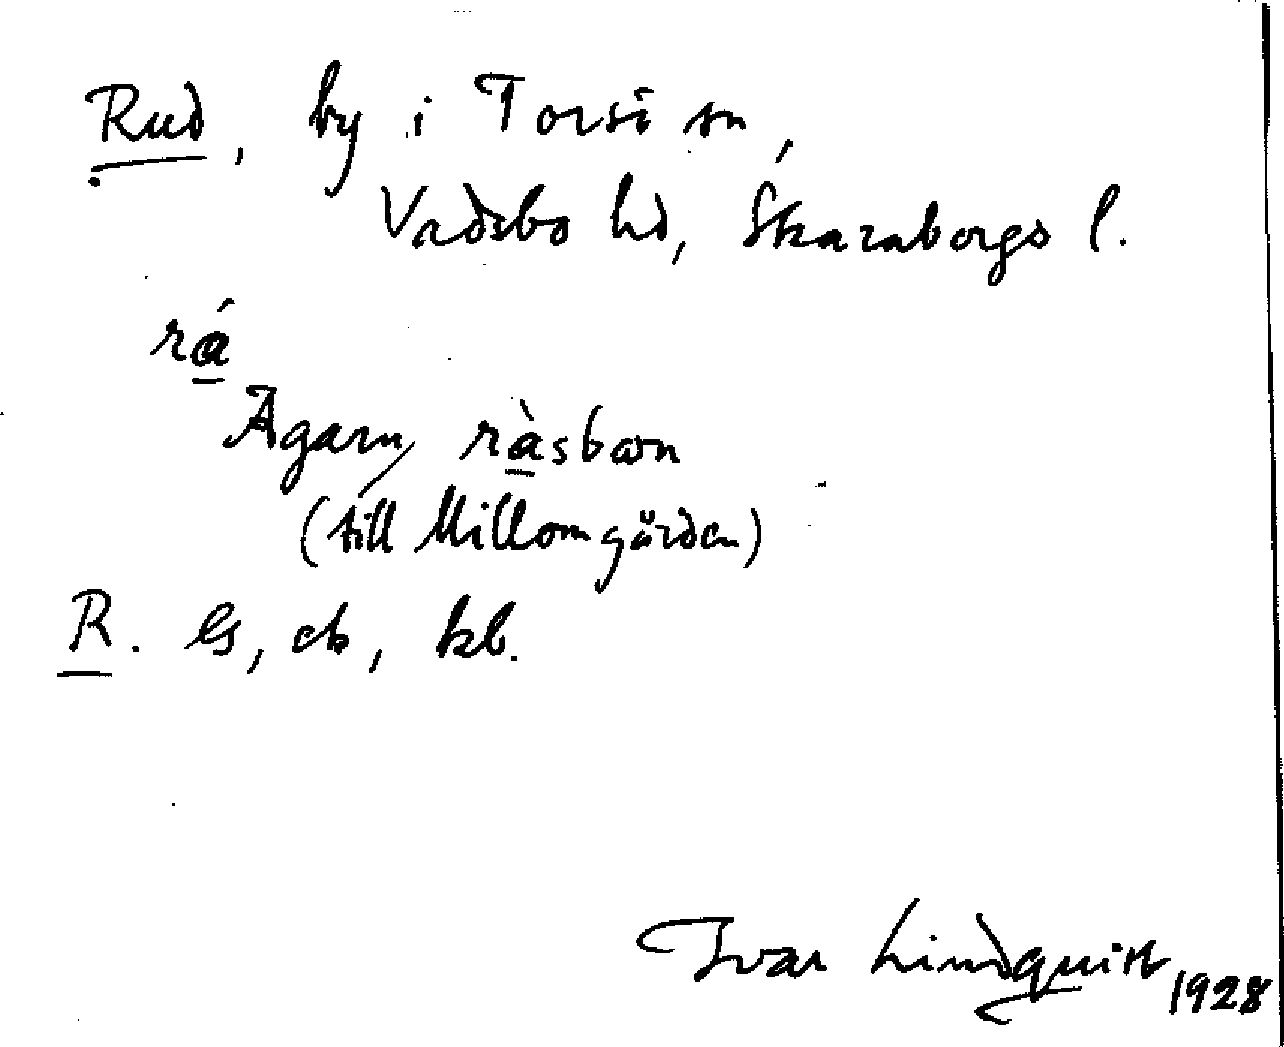 Rud, by i Torsö sn,
Vadsbo hd, Skaraborgs l.
rá
Ägarn, ràsbon
(till Millomgården)
R. GS, ek, kb.
Ivar Lindquist 1928